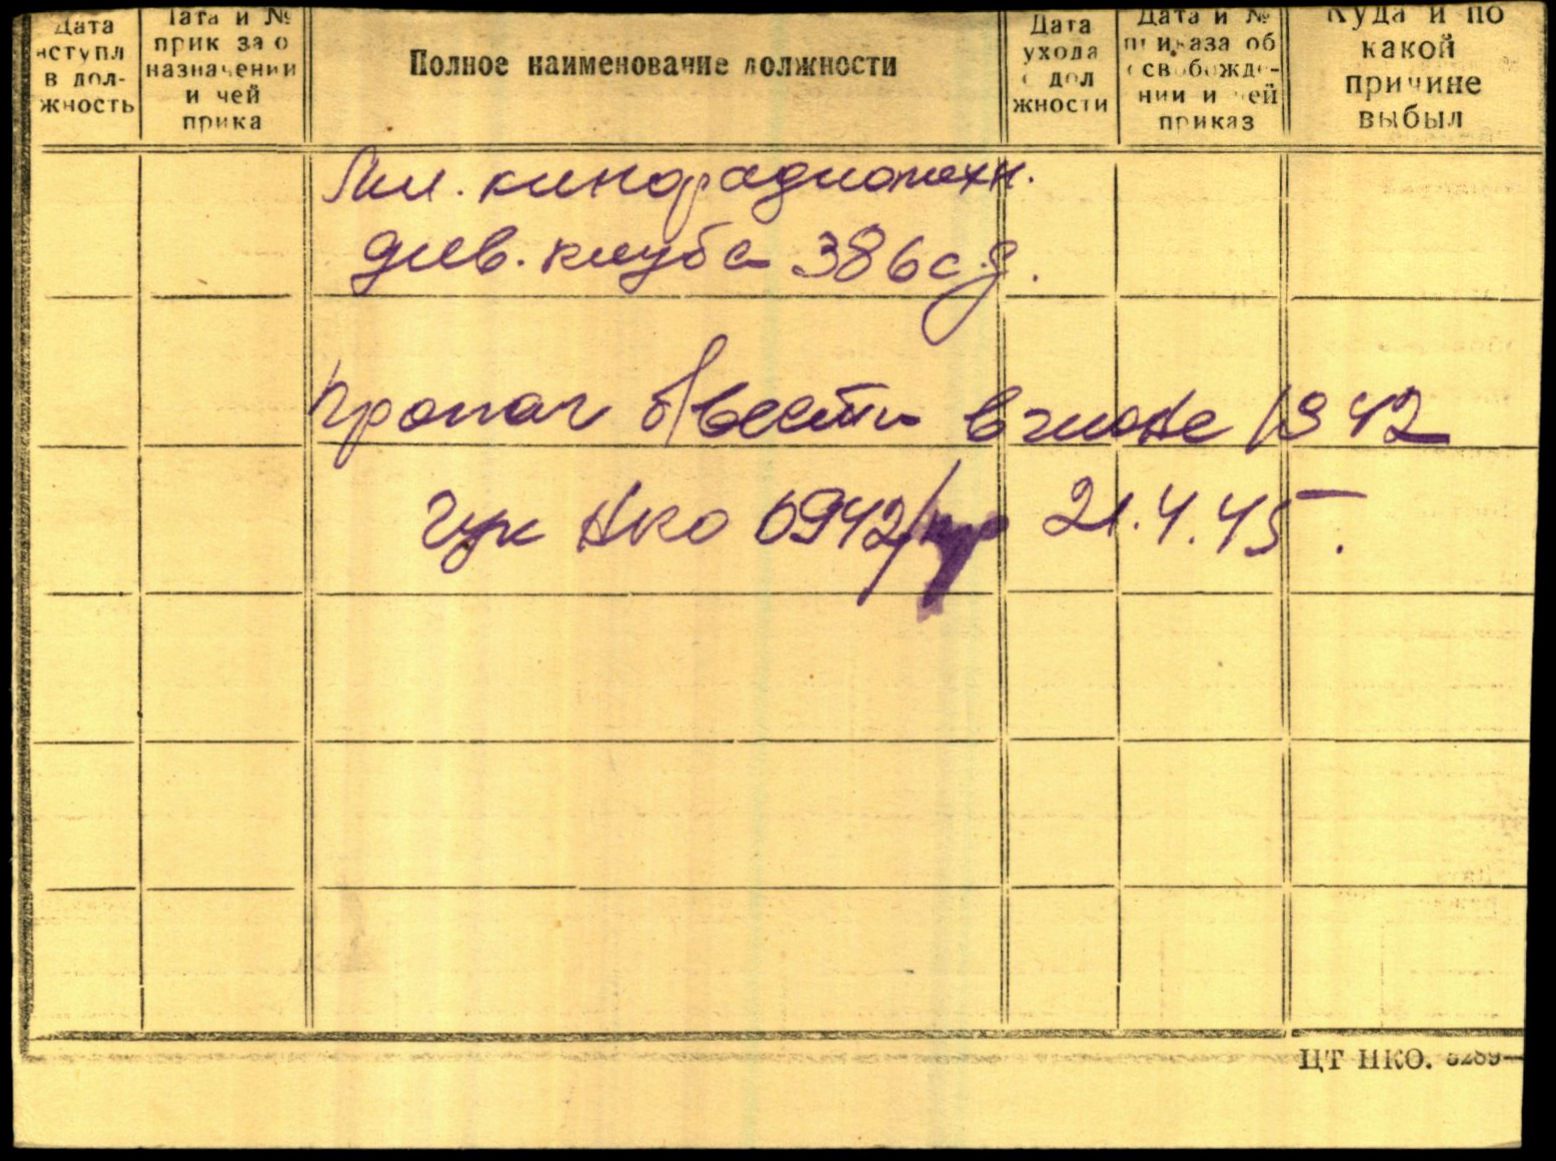 Дата
вступл
в дол-
жность
Дата и №
прик за о
назначении
и чей
прика
Полное наименование должности
Дата
ухода
с дол
жности
Дата и №
приказа об
освобожде-
нии и чей
приказ
Куда и по
какой
причине
выбыл
Мл. кинорадиотехн.
див. клуба 386 с.д.
Пропал б/вести в июне 1942
Гук НКО 0942/ 21.4.45.
ЦТ НКО.